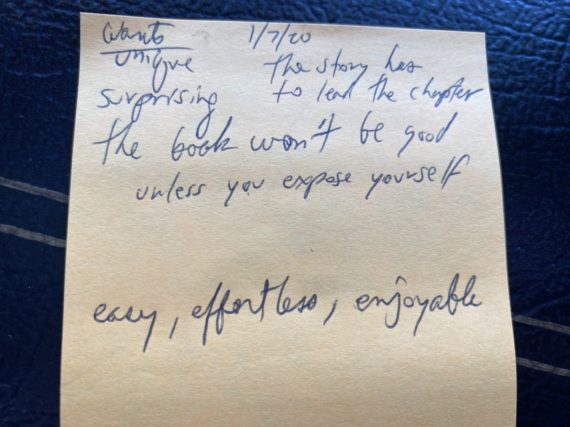 Wants 1/7/20
unique the story has
surprising to lead the chapter
the book won't be good
unless you expose yourself
easy, effortless, enjoyable